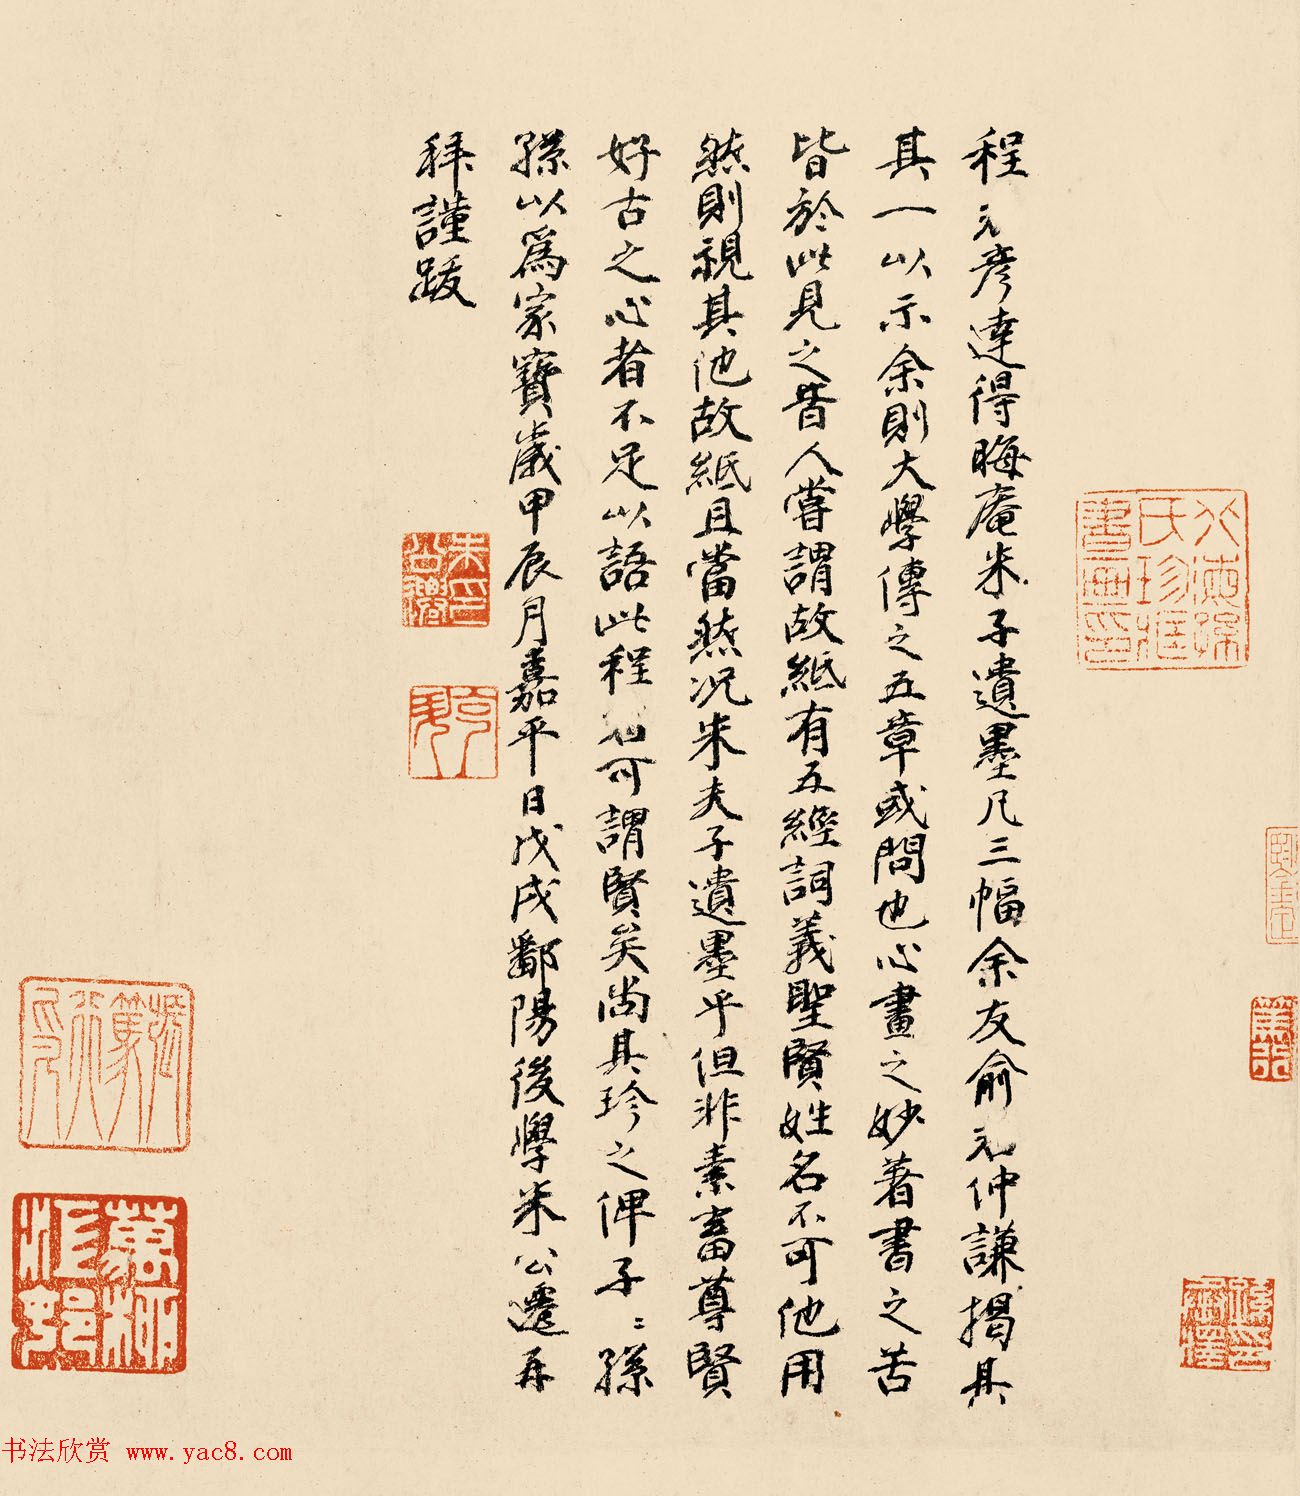 程元彥達得晦庵朱子遺墨凡三幅余友俞元仲謙揭其
其一以示余則大學傳之五章或問也心畫之妙著書之苦
皆於此見之昔人嘗謂故紙有五經詞義聖賢姓名不可他用
然則視其他故紙且當然況朱夫子遺墨乎但非素畜尊賢
好古之心者不足以語此程君可謂賢矣尚其珍之俾子〻孫
孫以為家寶歲甲辰月嘉平日戊戌鄱陽後學朱公遷再
拜謹跋
北海孫氏珍藏書畫印
朱印公遷
克升
張篤行印
蕉林收藏
篤行
书法欣赏 www.yac8.com